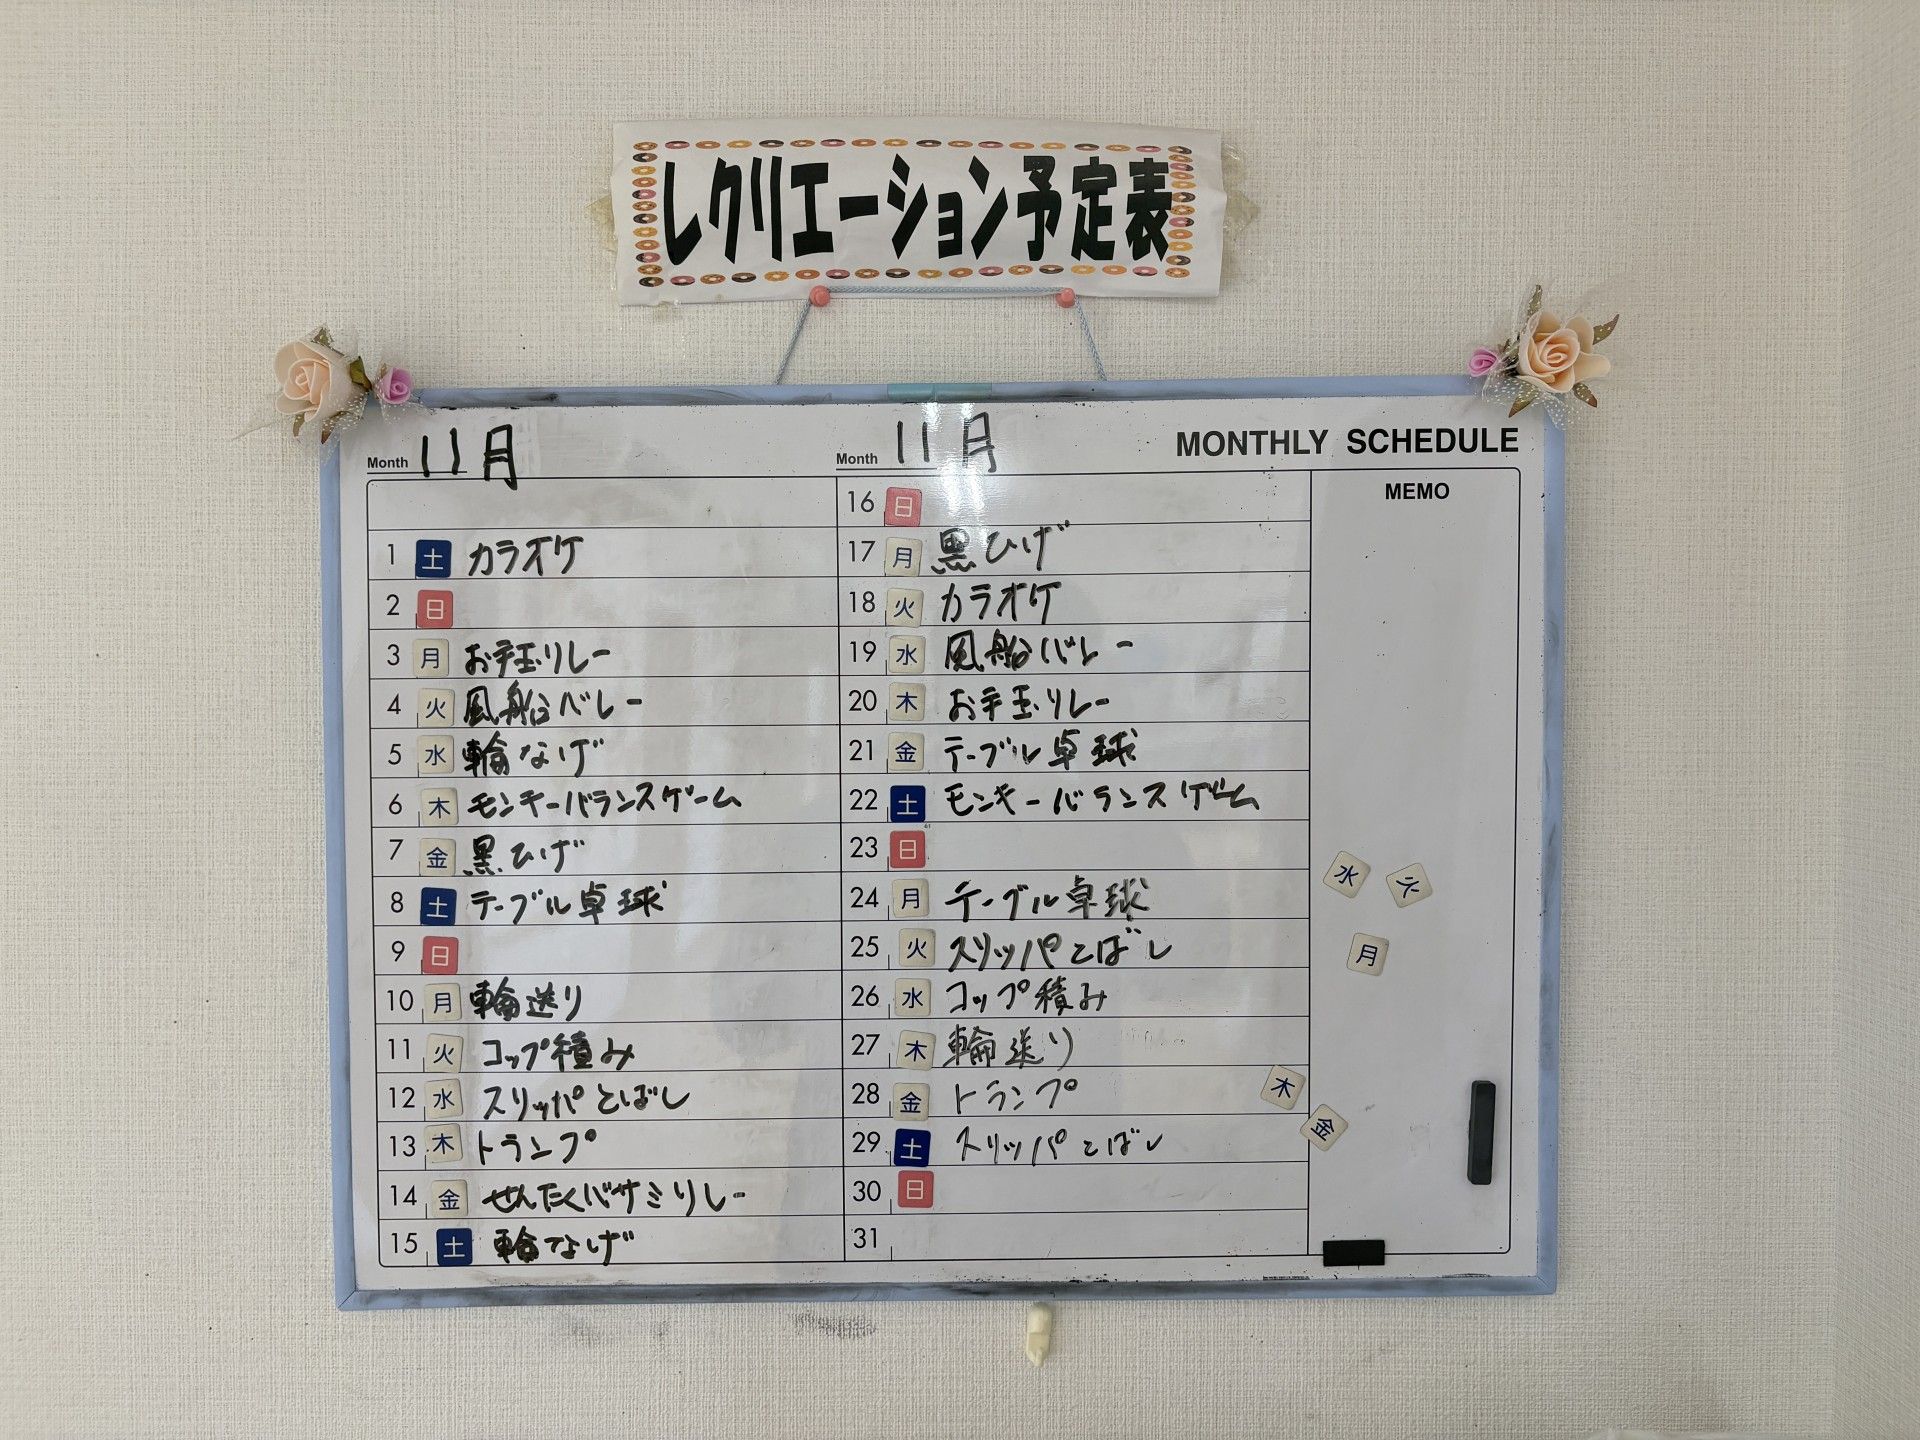 レクリエーション予定表
Month 11月
1 土 カラオケ
2 日
3 月 お手玉リレー
4 火 風船バレー
5 水 輪なげ
6 木 モンキーバランスゲーム
7 金 黒ひげ
8 土 テーブル卓球
9 日
10 月 輪送り
11 火 コップ積み
12 水 スリッパとばし
13 木 トランプ
14 金 せんたくバサミリレー
15 土 輪なげ
Month 11月
16 日
17 月 黒ひげ
18 火 カラオケ
19 水 風船バレー
20 木 お手玉リレー
21 金 テーブル卓球
22 土 モンキーバランスゲーム
23 日
24 月 テーブル卓球
25 火 スリッパとばし
26 水 コップ積み
27 木 輪送り
28 金 トランプ
29 土 スリッパとばし
30 日
31
MONTHLY SCHEDULE
MEMO
水 火
月
木
金